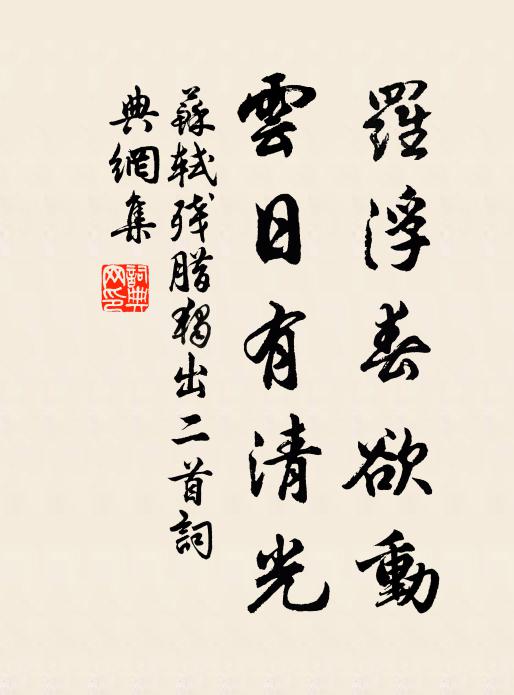 羅浮春欲動
雲日有清光
蘇軾残腊獨出二首詞
典網集
詞典網印